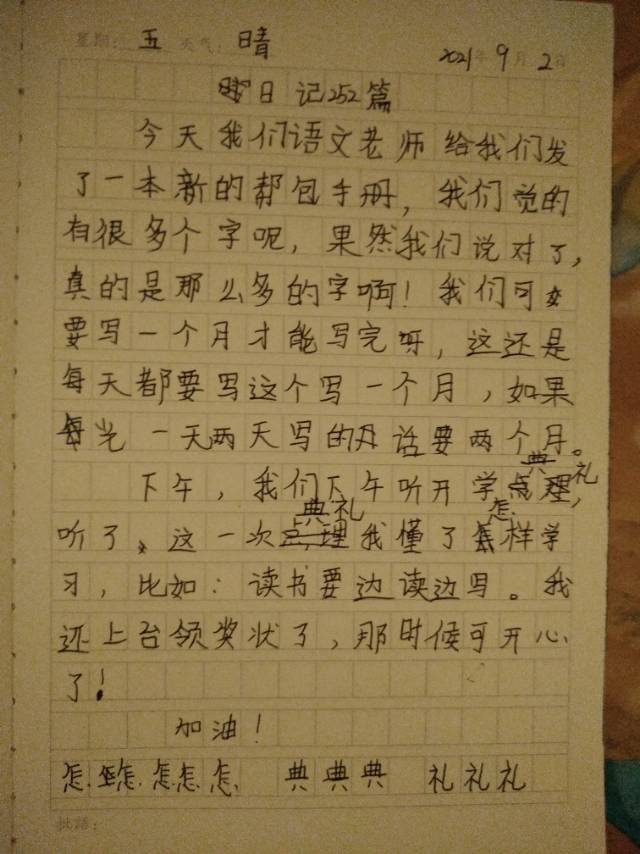 星期：五 天气：晴 2021年9月2日
日记252篇
今天我们语文老师给我们发
了一本新的帮包手册，我们觉的
有很多个字呢，果然我们说对了，
真的是那么多的字啊！我们可
要写一个月才能写完呀，这还是
每天都要写这个写一个月，如果
每光一天两天写的话要两个月。
典礼
下午，我们下午听开学点理，
典礼 怎
听了，这一次点理我懂了怎样学
习，比如：读书要边读边写。我
还上台领奖状了，那时候可开心
了！
加油！
怎怎怎怎怎 典典典 礼礼礼
批语：